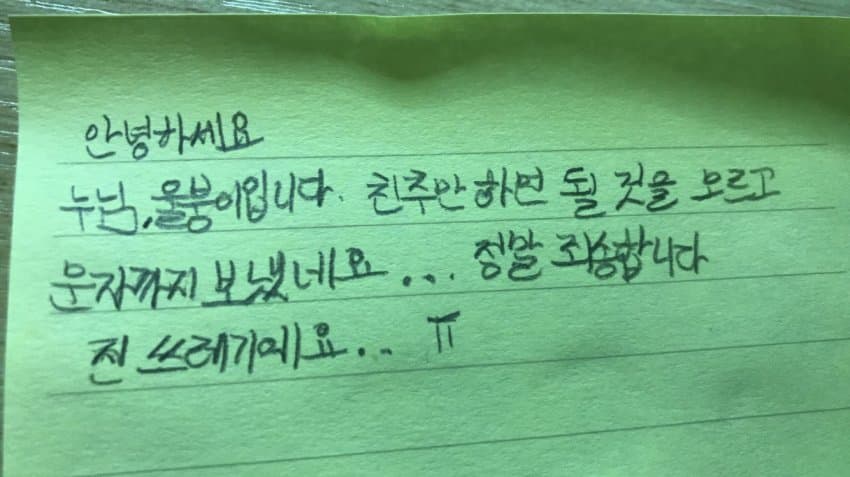 안녕하세요
누님,울붕이입니다. 친추안하면 될 것을 모르고
문자까지 보냈네요... 정말 죄송합니다
전 쓰레기에요... ㅠ